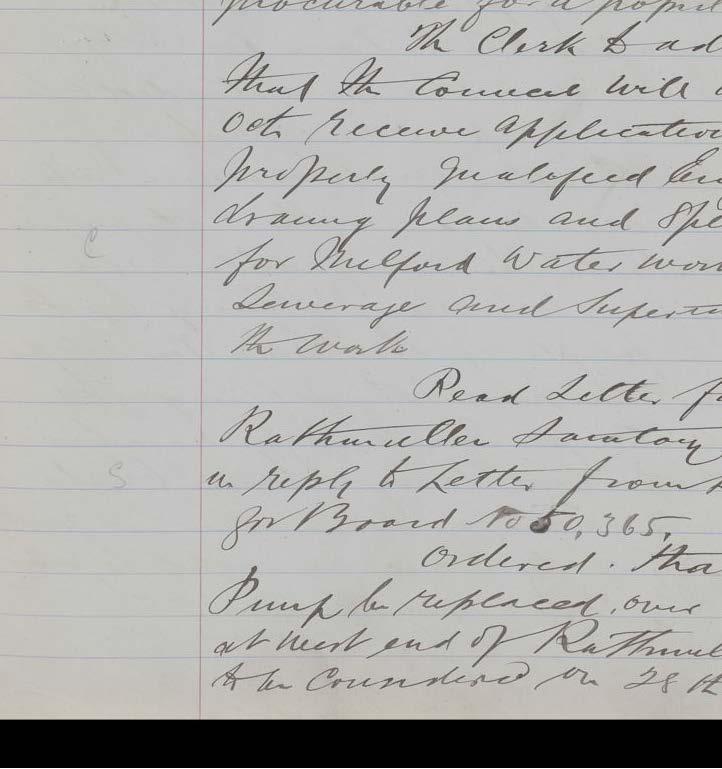 procurable for a
The Clerk to ad
that the Council will
Oct receive application
properly qualified En
drawing plans and Spe
for Milford Water wor
Sewerage and Superin
the work
C
Read Letter fr
Rathmullen Sanitary
in reply to Letter from
gov Board No 50,365,
S
Ordered. tha
Pump be replaced over
at west end of Rathmul
to be Considered on 28th